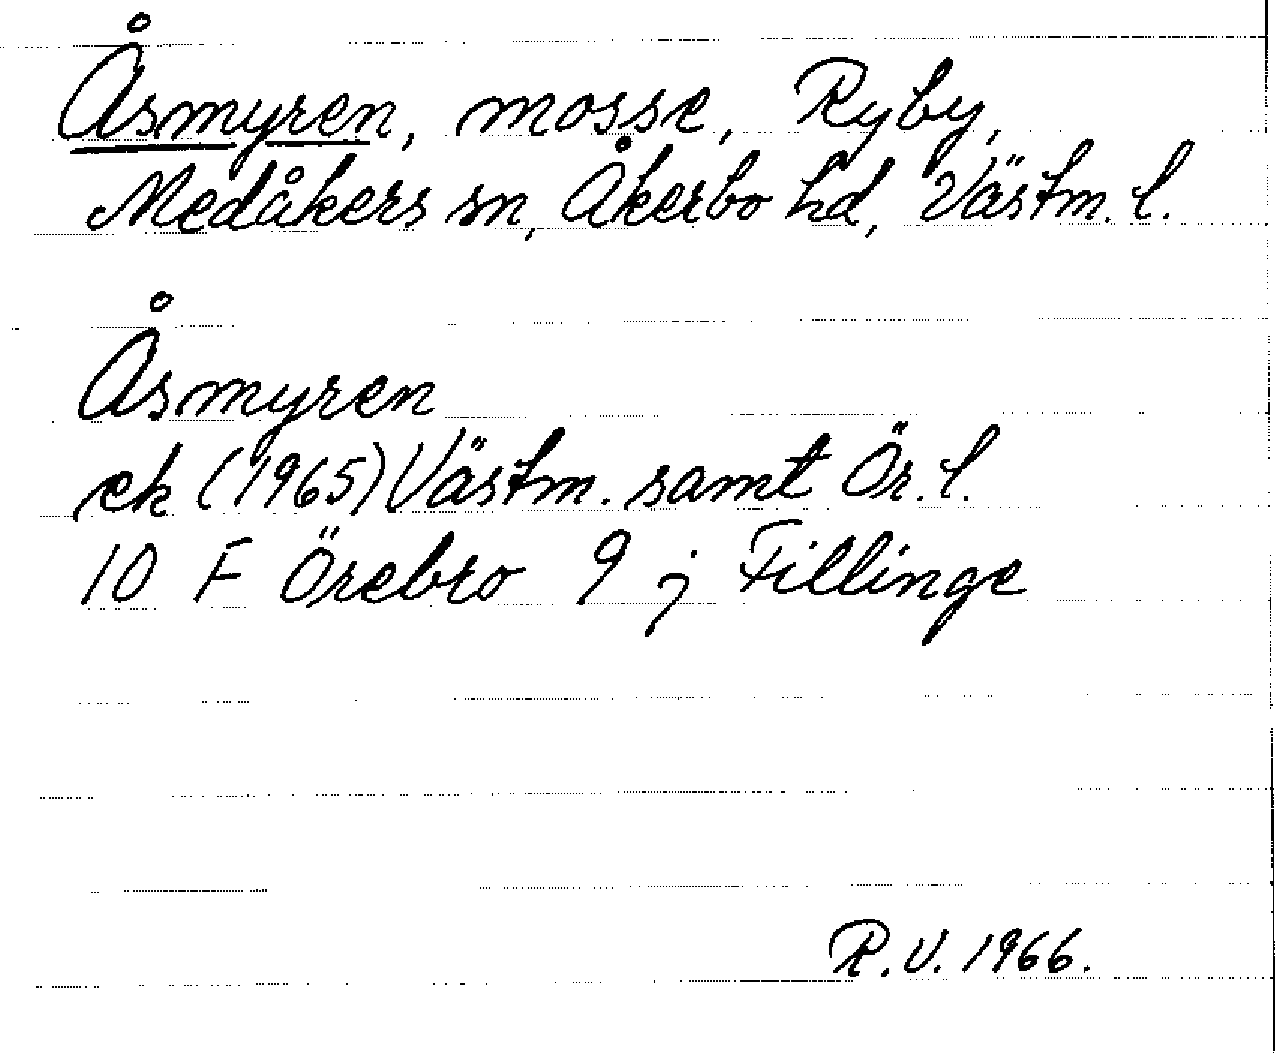 Åsmyren, mosse, Ryby,
Medåkers sn, Åkerbo hd, Västm. l.
Åsmyren
ek (1965) Västm. samt Ör. l.
10 F Örebro 9 j Fillinge
R.V. 1966.